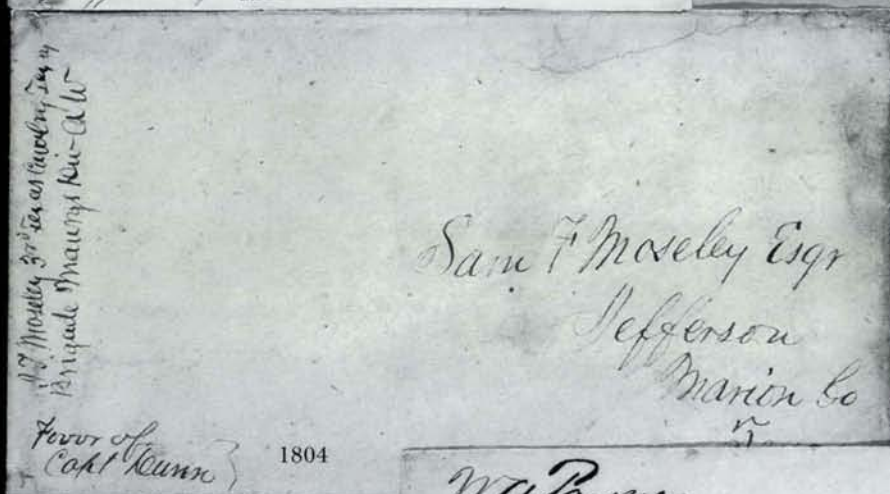 Moseley 3rd Texas Cavalry
Brigade Maurys Div - A W
Sam F Moseley Esqr
Jefferson
Marion Co
Favor of
Capt Dunn
1804